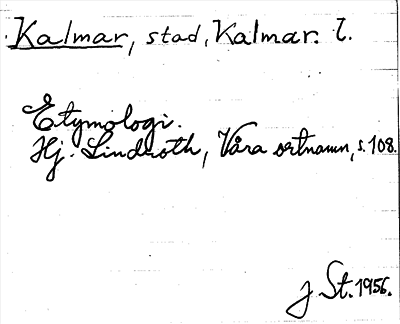 Kalmar, stad, Kalmar. l.
Etymologi.
Hj. Lindroth, Våra ortnamn, s. 108.
J St. 1956.